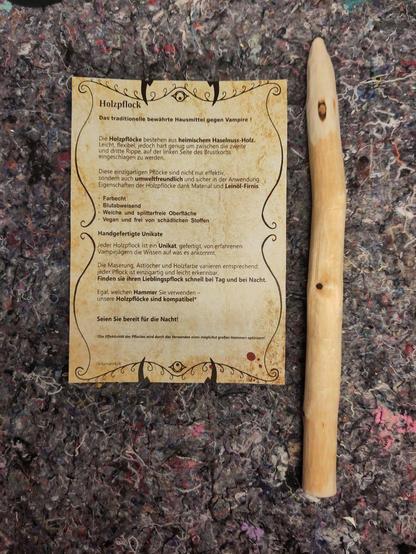 Holzpflock
Das traditionelle bewährte Hausmittel gegen Vampire !
Die Holzpflöcke bestehen aus heimischem Haselnuss-Holz.
Leicht, flexibel, jedoch hart genug um zwischen die zweite
und dritte Rippe, auf der linken Seite des Brustkorbs
eingeschlagen zu werden.
Diese einzigartigen Pflöcke sind nicht nur effektiv,
sondern auch umweltfreundlich und sicher in der Anwendung.
Eigenschaften der Holzpflöcke dank Material und Leinöl-Firnis
- Farbecht
- Blutabweisend
- Weiche und splitterfreie Oberfläche
- Vegan und frei von schädlichen Stoffen
Handgefertigte Unikate
Jeder Holzpflock ist ein Unikat, gefertigt von erfahrenen
Vampirjägern die Wissen auf was es ankommt.
Die Maserung, Astlöcher und Holzfarbe variieren entsprechend:
jeder Pflock ist einzigartig und leicht erkennbar.
Finden sie ihren Lieblingspflock schnell bei Tag und bei Nacht.
Egal, welchen Hammer Sie verwenden –
unsere Holzpflöcke sind kompatibel*
Seien Sie bereit für die Nacht!
*Die Effektivität des Pflockes wird durch das Verwenden eines möglichst großen Hammers optimiert!